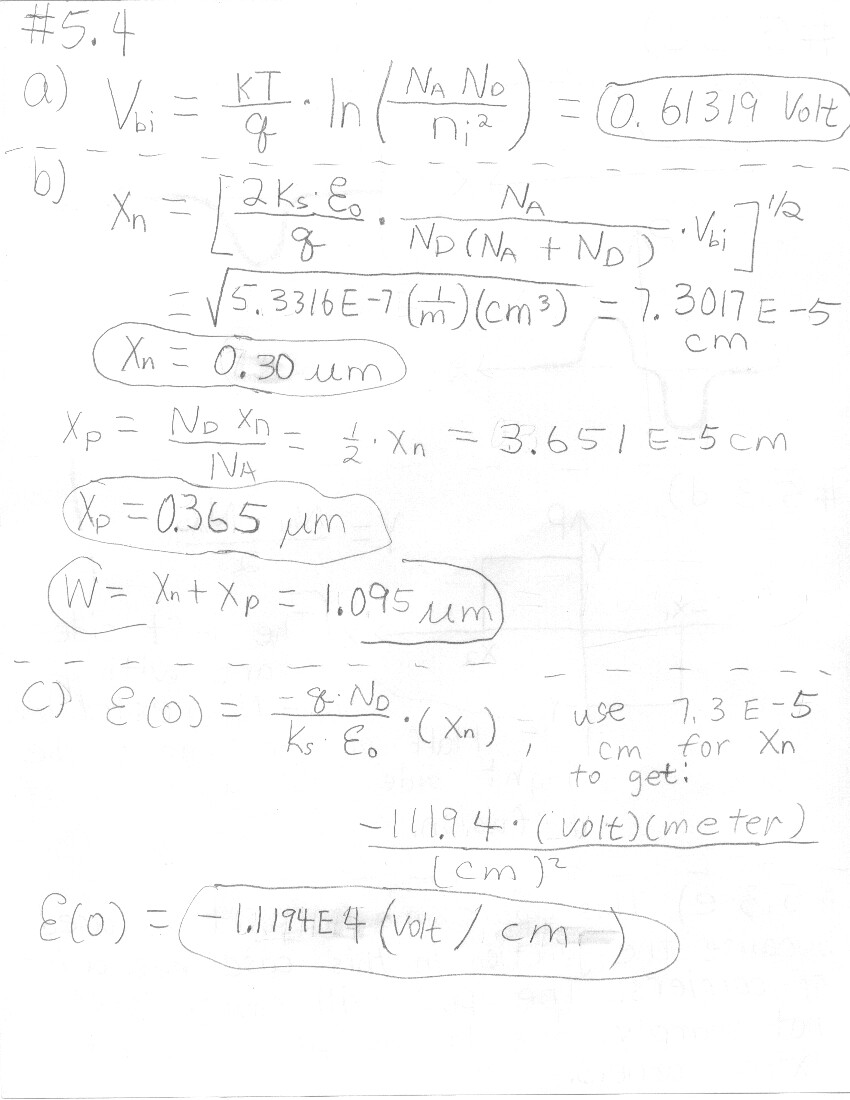 #5.4
a) V_bi = KT/q · ln(N_A N_D / n_i²) = 0.61319 Volt
b) X_n = [2 K_s · ε_0 / q · N_A / N_D (N_A + N_D) · V_bi]^1/2
= √5.3316E-7 (1/m)(cm³) = 7.3017 E-5
cm
X_n = 0.30 um
X_p = N_D X_n / N_A = 1/2 · X_n = 3.651 E-5 cm
X_p = 0.365 μm
W = X_n + X_p = 1.095 um
c) ε(0) = -q · N_D / K_s · ε_0 · (X_n) , use 7.3 E-5
cm for X_n
to get:
-111.94 · (volt)(meter) / (cm)²
ε(0) = -1.1194E4 (Volt / cm)